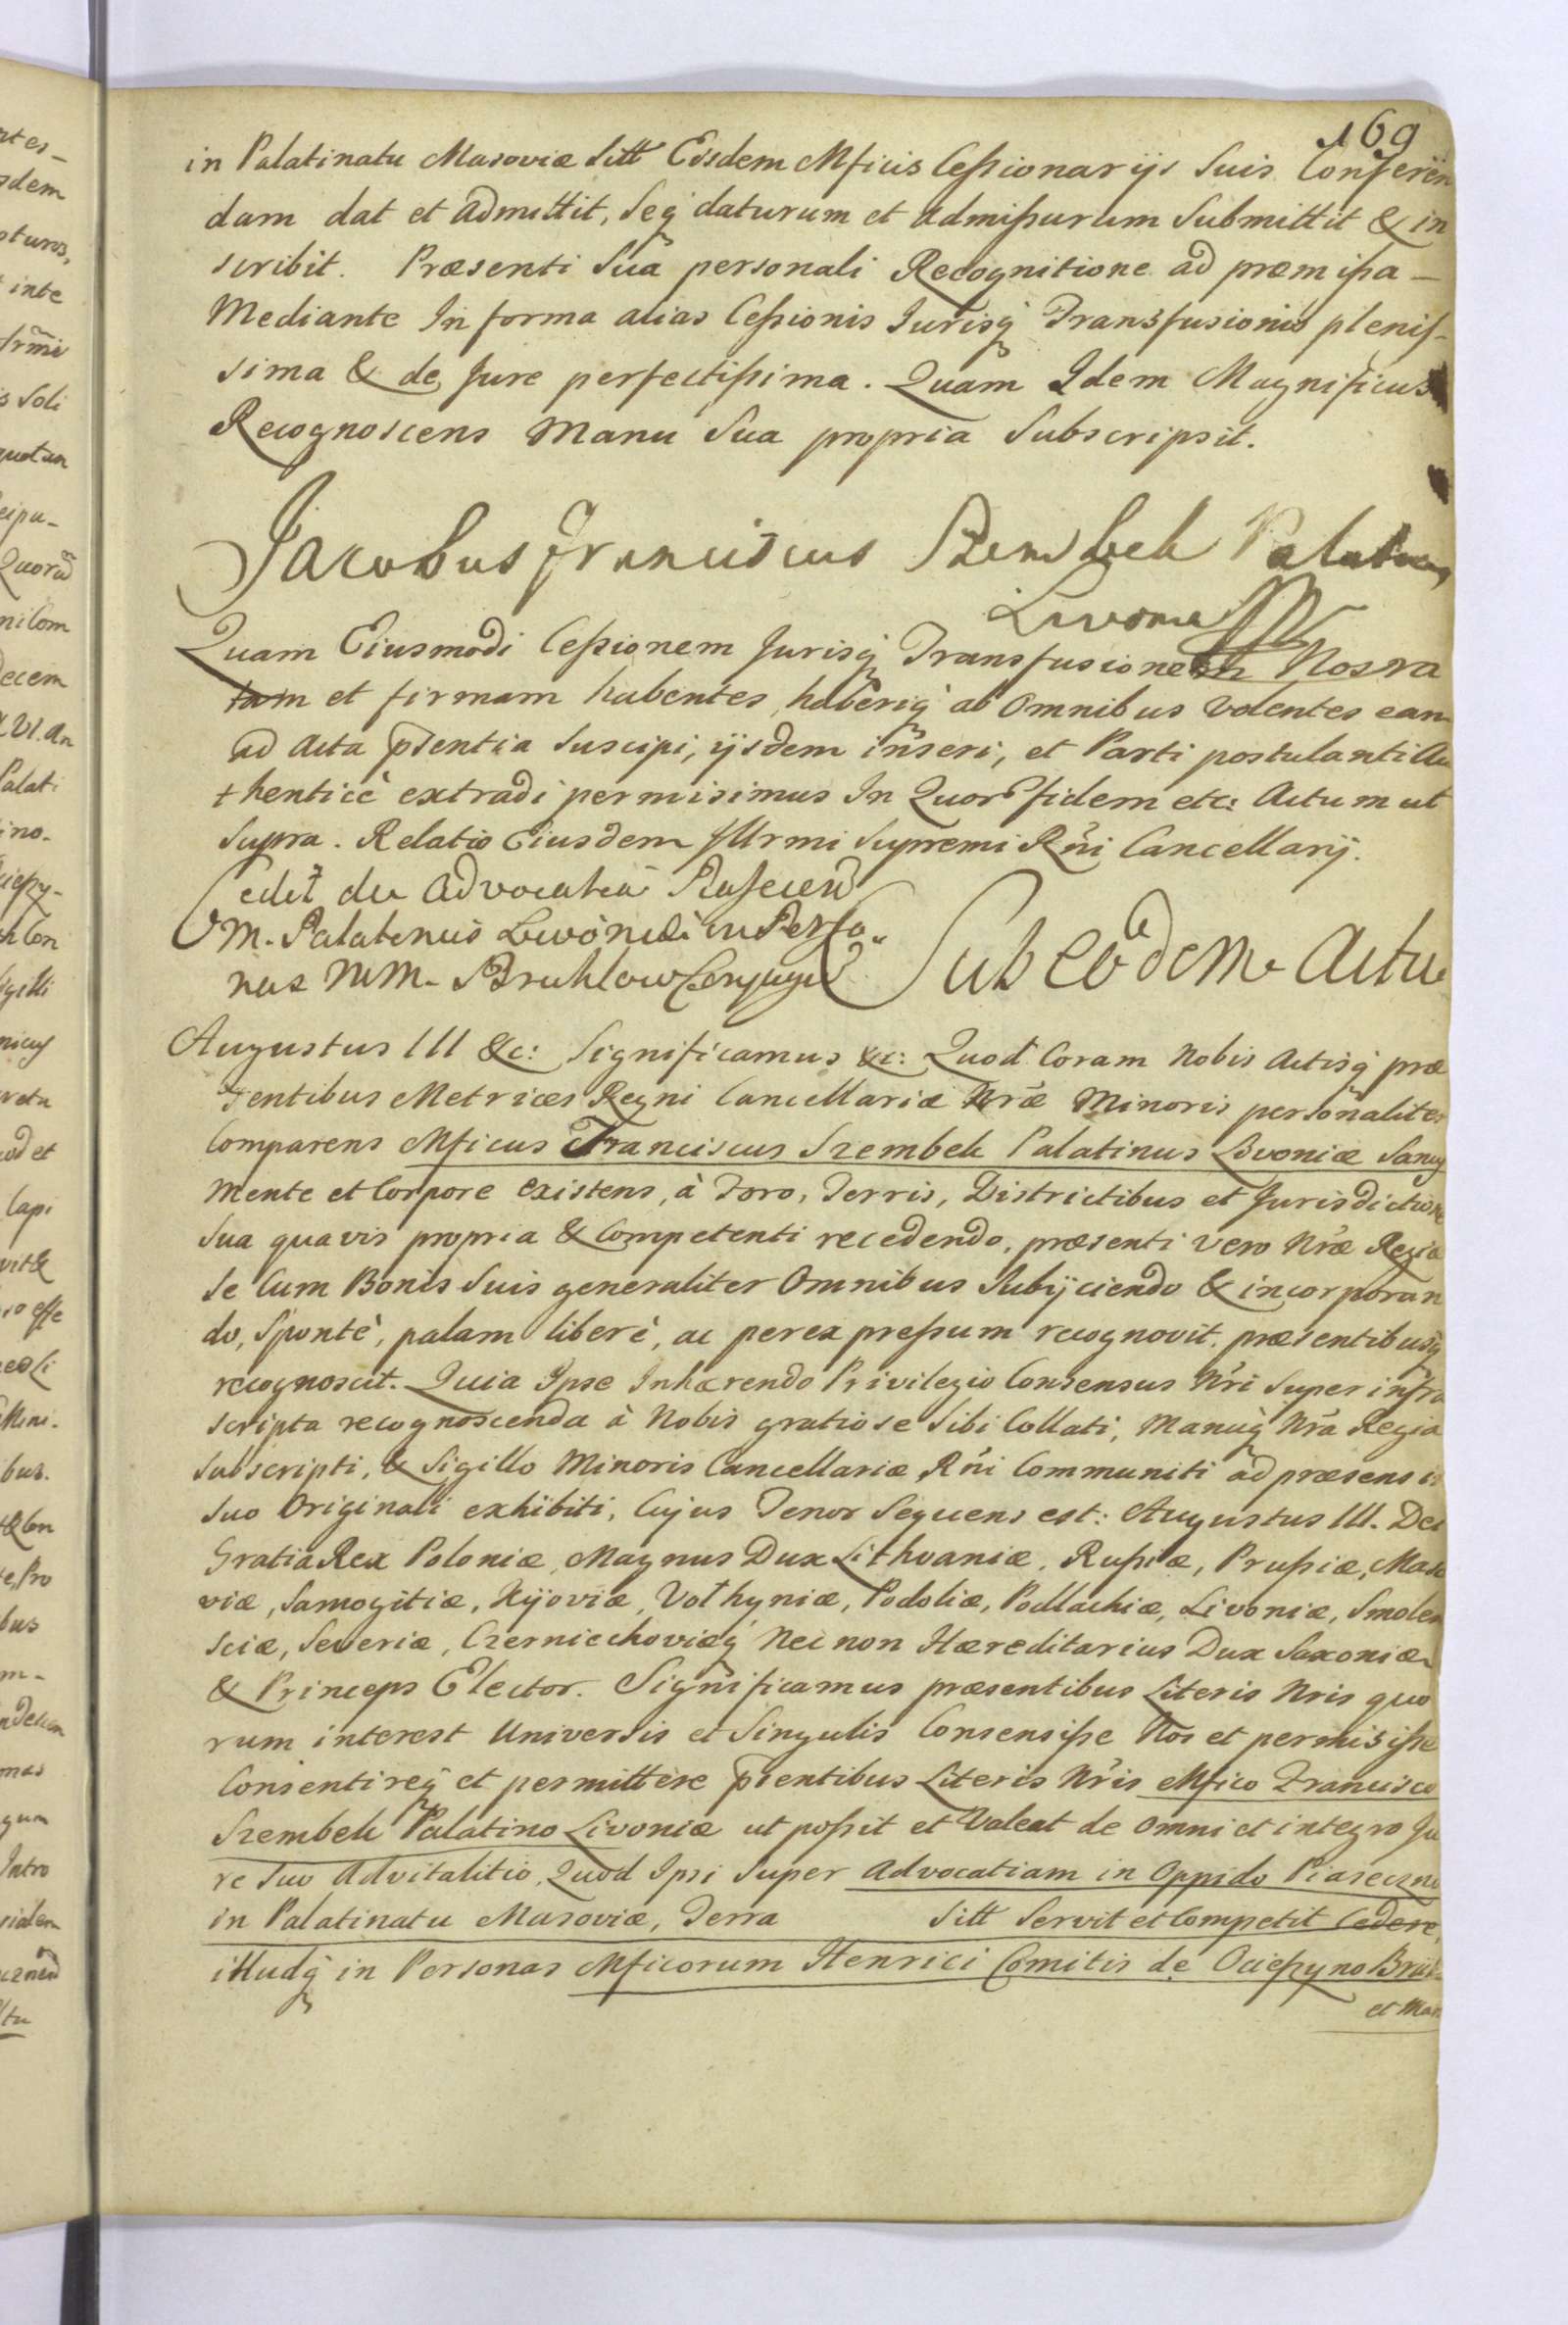 169
in Palatinatu Masoviæ sitt Eisdem Mficis Cessionarijs Suis Conferen
dam dat et admittit, Seq daturum et admissurum Submittit & in
scribit. Præsenti Sua personali Recognitione ad præmissa
Mediante In forma alias Cessionis Jurisq Transfusionis plenis-
sima & de Jure perfectissima. Quam Idem Magnificus
Recognoscens Manu Sua propria Subscripsit.
Jacobus Franciscus Szembek Palatinus
Livoniæ
Quam Eiusmodi Cessionem Jurisq Transfusionem Nos ra
tam et firmam habentes, haberiq ab Omnibus Volentes eam
ad Acta pͬsentia Suscipi, ijsdem inseri, et Parti postulanti Au
thenticè extradi permisimus In Quor fidem etc: Actum ut
Supra. Relatio Eiusdem Illrmi Supremi Rñi Cancellarij.
Cedit de Advocatia
M. Palatinus Livoniæ in Perso-
nas MM. Bruhlow Conjugu
Sub eodem Actu
Augustus III &c: Significamus &c: Quod Coram Nobis Actisq præ
sentibus Metrices Regni Cancellariæ Nræ Minoris personaliter
Comparens Mficus Franciscus Szembek Palatinus Livoniæ Sanus
Mente et Corpore existens, à Foro, Terris, Districtibus et Jurisdictione
Sua quavis propria & Competenti recedendo, præsenti vero Nræ Regiæ
Se Cum Bonis Suis generaliter Omnibus Subijciendo & incorporan
do, Spontè, palam liberè, ac per expressum recognovit, præsentibusq
recognoscit. Quia Ipse Inhærendo Privilegio Consensus Nri Super infra
scripta recognoscenda à Nobis gratiose Sibi Collati, Manuq Nra Regia
Subscripti, & Sigillo Minoris Cancellariæ Rñi Communiti ad præsens in
Suo Originali exhibiti, Cujus Tenor Sequens est: Augustus III. Dei
Gratia Rex Poloniæ, Magnus Dux Lithvaniæ, Russiæ, Prussiæ, Maso
viæ, Samogitiæ, Kijoviæ, Volhyniæ, Podoliæ, Podlachiæ, Livoniæ, Smolen
sciæ, Severiæ, Czerniechoviæq Nec non Hæreditarius Dux Saxoniæ
& Princeps Elector. Significamus præsentibus Literis Nris quo
rum interest Universis et Singulis Consensisse Nos et permisisse
Consentireq et permittere pͬsentibus Literis Nris Mfico Francisco
Szembek Palatino Livoniæ ut possit et Valeat de Omni et integro Ju
re Suo Advitalitio, Quod Ipsi Super Advocatiam in Oppido Piaseczno
in Palatinatu Masoviæ, Terra sitt Servit et Competit Cedere,
illudq in Personas Mficorum Henrici Comitis de Ocieszyno Brühl
et Mar